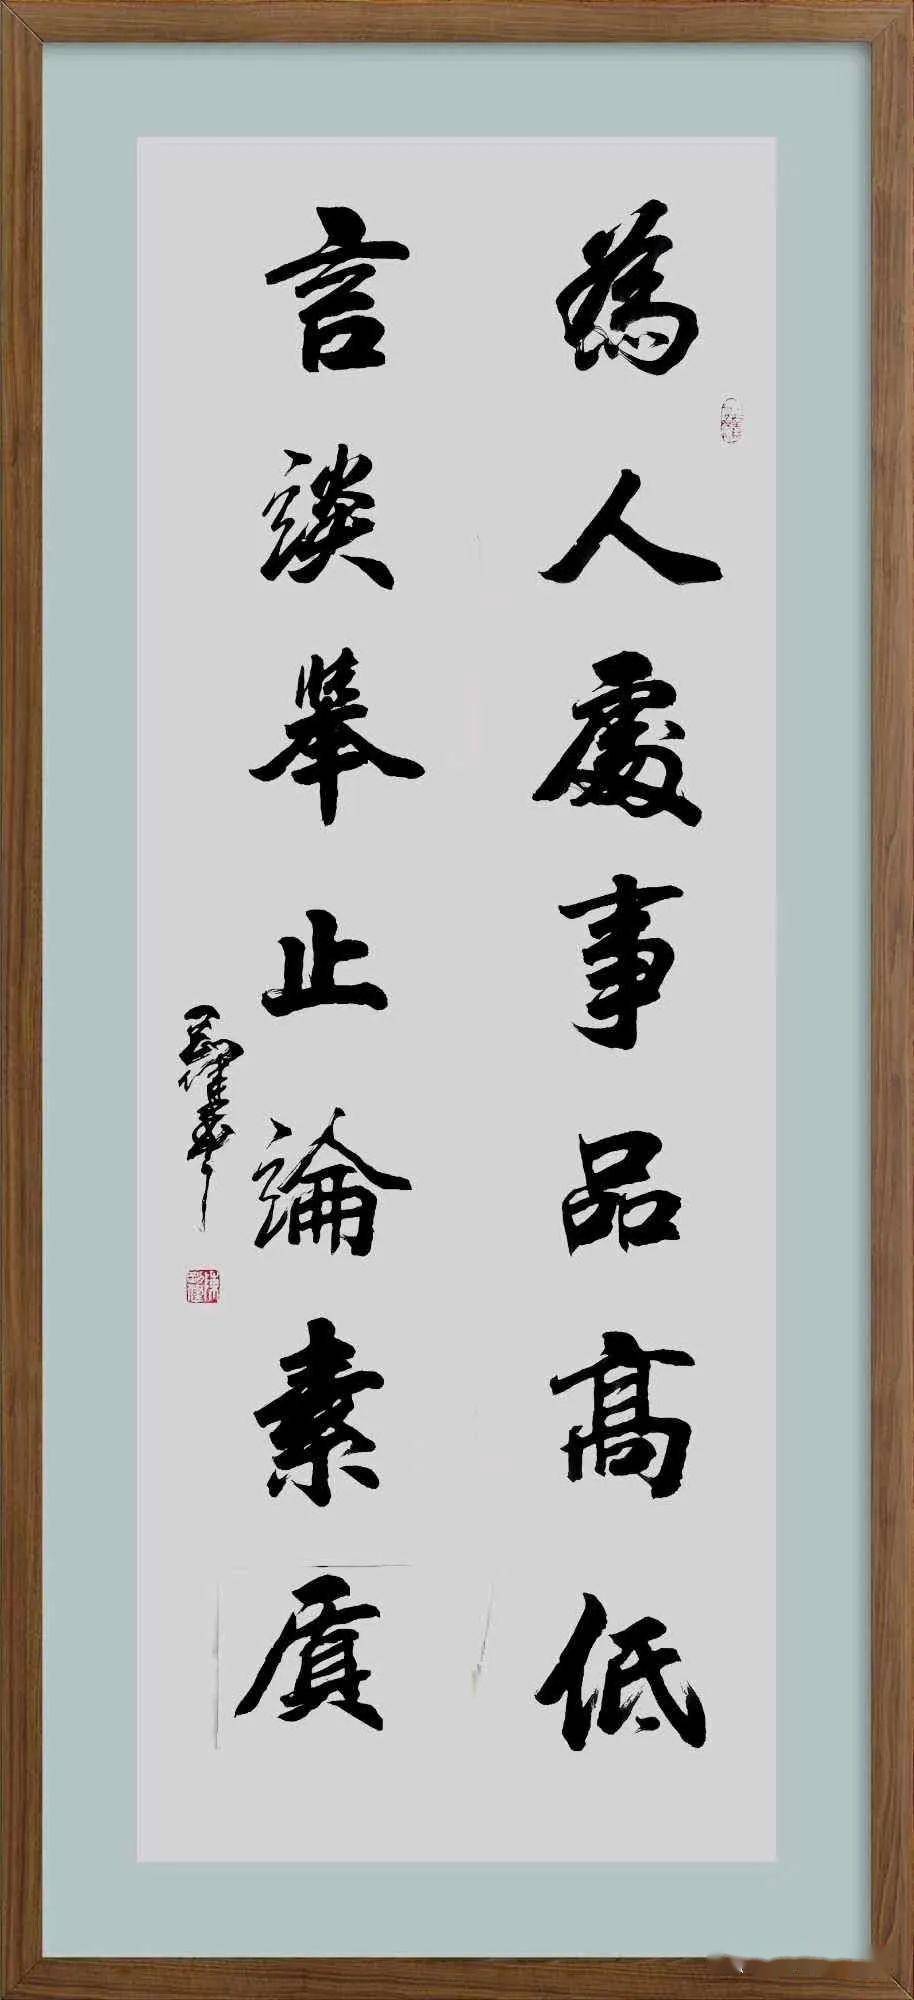 為人處事品高低
言談舉止論素質